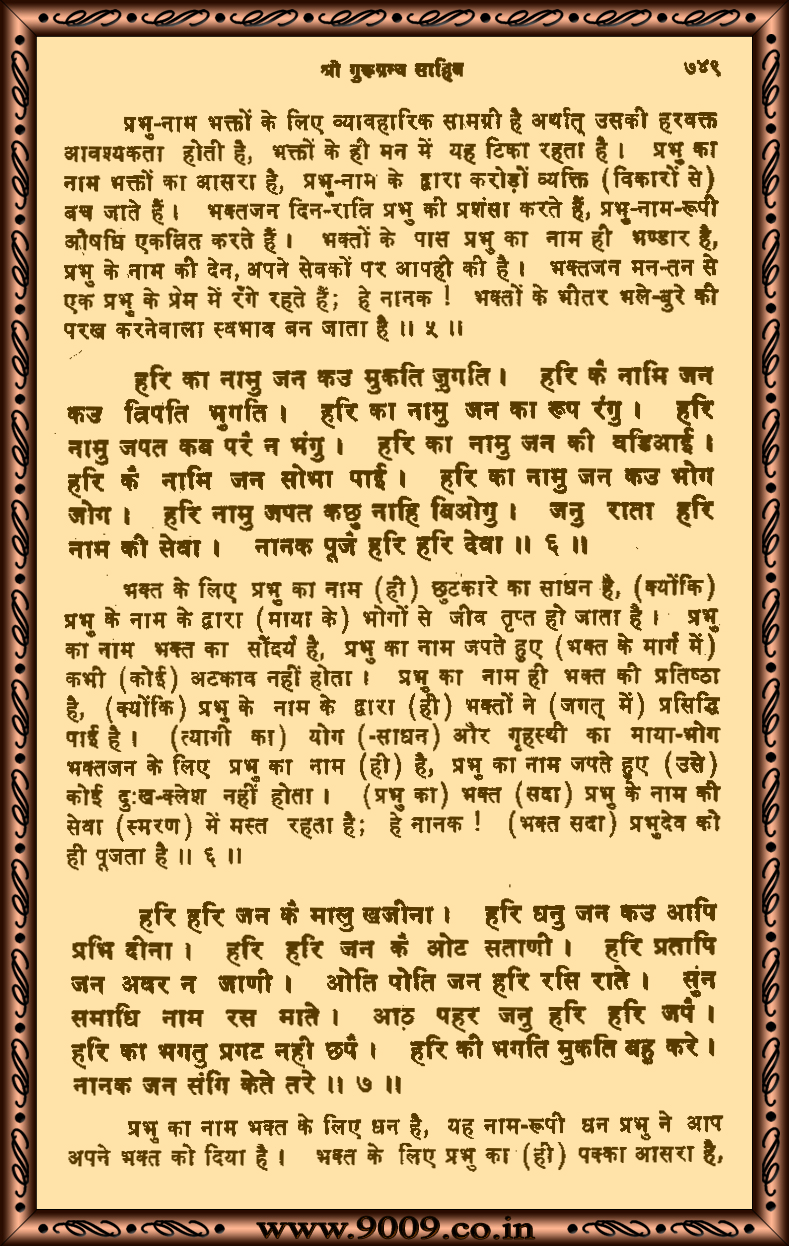 श्री गुरूग्रन्थ साहिब ७४९
प्रभु-नाम भक्तों के लिए व्यावहारिक सामग्री है अर्थात् उसकी हरवक्त
आवश्यकता होती है, भक्तों के ही मन में यह टिका रहता है । प्रभु का
नाम भक्तों का आसरा है, प्रभु-नाम के द्वारा करोड़ों व्यक्ति (विकारों से)
बच जाते हैं । भक्तजन दिन-रात्रि प्रभु की प्रशंसा करते हैं, प्रभु-नाम-रूपी
औषधि एकत्रित करते हैं । भक्तों के पास प्रभु का नाम ही भण्डार है,
प्रभु के नाम की देन, अपने सेवकों पर आपही की है । भक्तजन मन-तन से
एक प्रभु के प्रेम में रँगे रहते हैं; हे नानक ! भक्तों के भीतर भले-बुरे की
परख करनेवाला स्वभाव बन जाता है ॥ ५ ॥
हरि का नामु जन कउ मुकति जुगति । हरि कै नामि जन
कउ त्रिपति भुगति । हरि का नामु जन का रूप रंगु । हरि
नामु जपत कब परै न भंगु । हरि का नामु जन की वडिआई ।
हरि कै नामि जन सोभा पाई । हरि का नामु जन कउ भोग
जोग । हरि नामु जपत कछु नाहि बिओगु । जनु राता हरि
नाम की सेवा । नानक पूजै हरि हरि देवा ॥ ६ ॥
भक्त के लिए प्रभु का नाम (ही) छुटकारे का साधन है, (क्योंकि)
प्रभु के नाम के द्वारा (माया के) भोगों से जीव तृप्त हो जाता है । प्रभु
का नाम भक्त का सौंदर्य है, प्रभु का नाम जपते हुए (भक्त के मार्ग में)
कभी (कोई) अटकाव नहीं होता । प्रभु का नाम ही भक्त की प्रतिष्ठा
है, (क्योंकि) प्रभु के नाम के द्वारा (ही) भक्तों ने (जगत् में) प्रसिद्धि
पाई है । (त्यागी का) योग (-साधन) और गृहस्थी का माया-भोग
भक्तजन के लिए प्रभु का नाम (ही) है, प्रभु का नाम जपते हुए (उसे)
कोई दुःख-क्लेश नहीं होता । (प्रभु का) भक्त (सदा) प्रभु के नाम की
सेवा (स्मरण) में मस्त रहता है; हे नानक ! (भक्त सदा) प्रभुदेव को
ही पूजता है ॥ ६ ॥
हरि हरि जन कै मालु खजीना । हरि धनु जन कउ आपि
प्रभि दीना । हरि हरि जन कै ओट सताणी । हरि प्रतापि
जन अवर न जाणी । ओति पोति जन हरि रसि राते । सुंन
समाधि नाम रस माते । आठ पहर जनु हरि हरि जपै ।
हरि का भगतु प्रगट नही छपै । हरि की भगति मुकति बहु करे ।
नानक जन संगि केते तरे ॥ ७ ॥
प्रभु का नाम भक्त के लिए धन है, यह नाम-रूपी धन प्रभु ने आप
अपने भक्त को दिया है । भक्त के लिए प्रभु का (ही) पक्का आसरा है,
www.9009.co.in